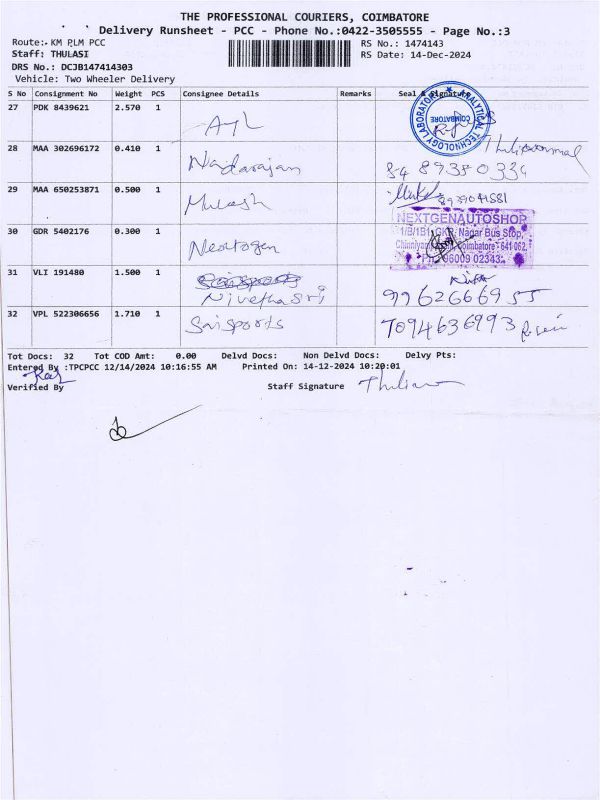 THE PROFESSIONAL COURIERS, COIMBATORE
Delivery Runsheet - PCC - Phone No.:0422-3505555 - Page No.:3
Route:- KM PLM PCC
RS No.: 1474143
Staff: THULASI
RS Date: 14-Dec-2024
DRS No.: DCJB147414303
Vehicle: Two Wheeler Delivery
S No Consignment No Weight PCS Consignee Details Remarks Seal & Signature
27 PDK 8439621 2.570 1
ANALYTICAL TECHNOLOGY LABORATORY COIMBATORE
28 MAA 302696172 0.410 1 Nadarajan
29 MAA 650253871 0.500 1 Mukesh
30 GDR 5402176 0.300 1 Nextgen
NEXTGENAUTOSHOP
Nagar Bus Stop,
Coimbatore - 641 062.
Ph: 96009 02343
31 VLI 191480 1.500 1 Nivethasri 9962666955
32 VPL 522306656 1.710 1 Saisports 7094636993
Tot Docs: 32 Tot COD Amt: 0.00 Delvd Docs: Non Delvd Docs: Delvy Pts:
Entered By :TPCPCC 12/14/2024 10:16:55 AM Printed On: 14-12-2024 10:20:01
Verified By Staff Signature